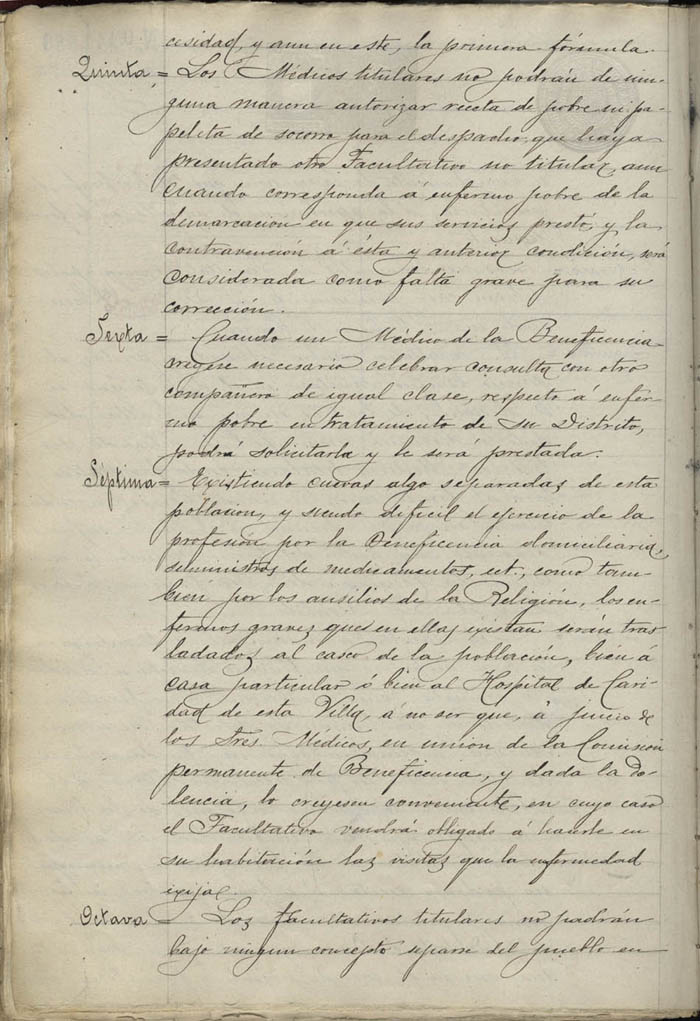 cesidad, y aun en este, la primera fórmula.
Quinta = Los Médicos titulares no podrán de nin-
guna manera autorizar receta de pobre ni pa-
peleta de socorro para el despacho, que haya
presentado otro Facultativo no titular, aun
cuando corresponda á enfermo pobre de la
demarcacion en que sus servicios prestó, y la
contravención á ésta y anterior condición, será
considerada como falta grave para su
corrección.
Sexta = Cuando un Médico de la Beneficencia
creyese necesario celebrar consulta con otro
compañero de igual clase, respecto á enfer-
mo pobre en tratamiento de su Distrito,
podrá solicitarla y le será prestada.
Séptima = Existiendo cuevas algo separadas de esta
poblacion, y siendo dificil el ejercicio de la
profesión por la Beneficencia domiciliaria,
suministros de medicamentos, ect., como tam-
bien por los ausilios de la Religión, los en-
fermos graves que en ellas existan serán tras
ladados al casco de la población, bien á
casa particular ó bien al Hospital de Cari-
dad de esta Villa, á no ser que, á juicio de
los tres Médicos, en unión de la Comisión
permanente de Beneficencia, y dada la do-
lencia, lo creyesen conveniente, en cuyo caso
el Facultativo vendrá obligado á hacerle en
su habitación las visitas que la enfermedad
exija.
Octava = Los facultativos titulares no podrán
bajo ningun concepto separse del pueblo en